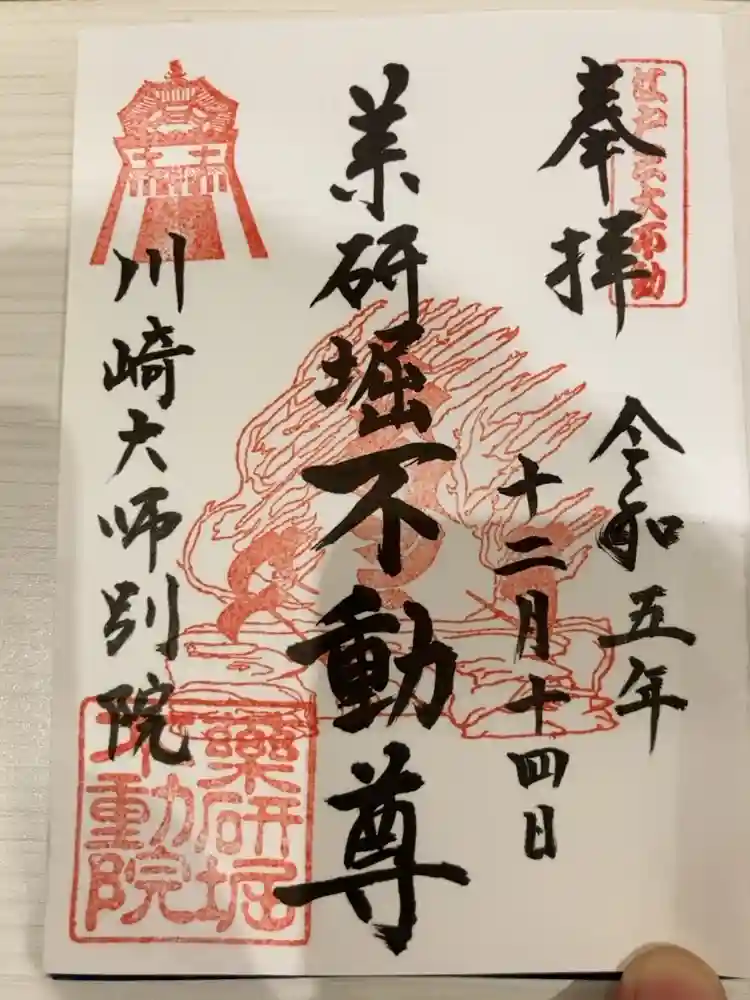 奉拝
江戸六大不動
令和五年
十二月十四日
業研堀不動尊
川崎大師別院
藥研堀
不動院